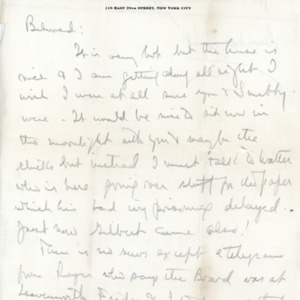 119 EAST 29TH STREET, NEW YORK CITY
Beloved:
It is very hot but the house is
nice & I am getting along all right I
wish I were at all sure you &
were. It would be nice to sit now in
the moonlight with you & maybe the
chicks but instead I must talk to Walter
who is here going over stuff for the paper
which his had
Just now Gilbert came also!
There is no news except a telegram
from Roger who says the Board was at
Leavenworth